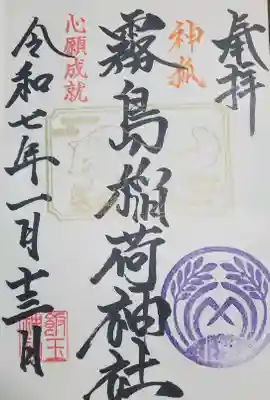 奉拝
神狐
霧島稲荷神社
心願成就
令和七年一月十三日